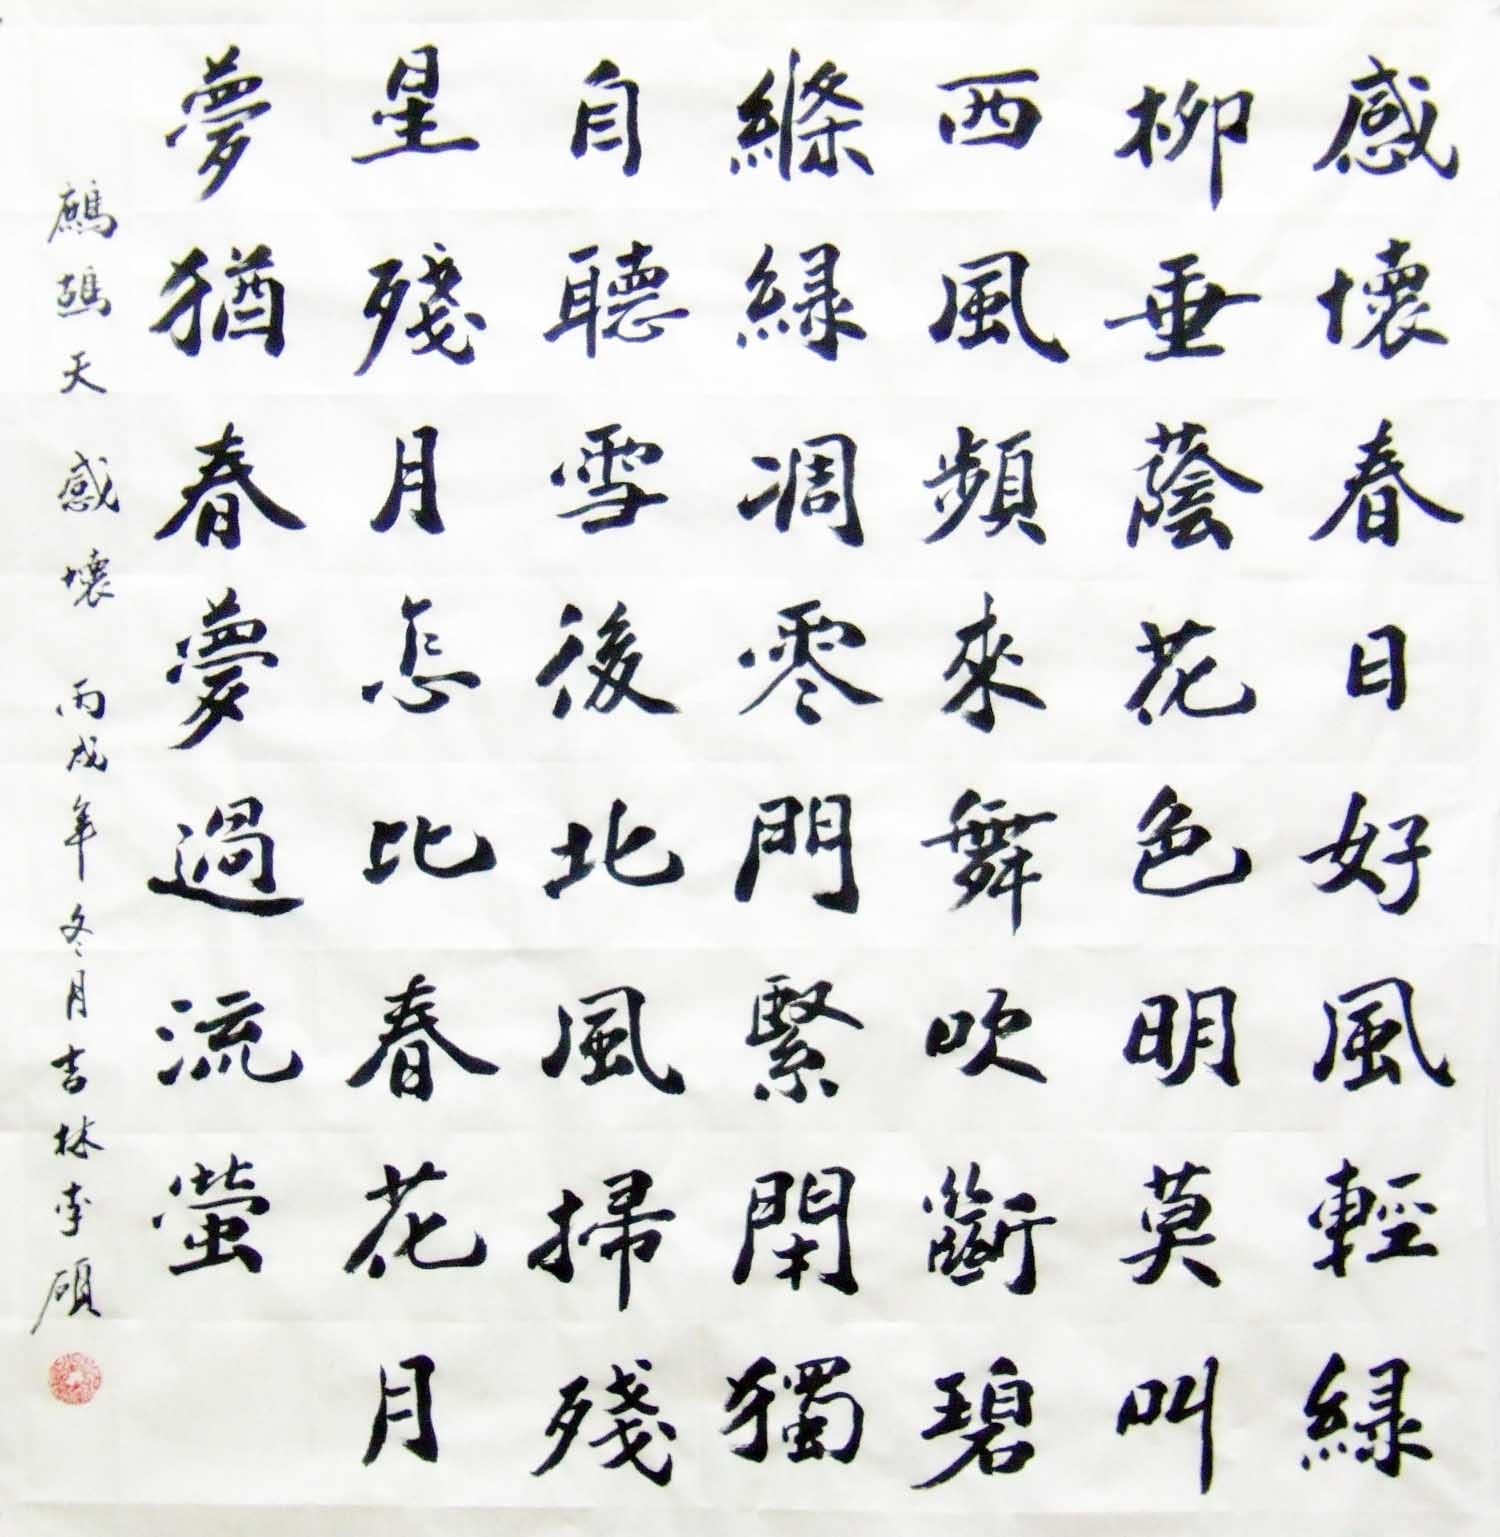 感懷春日好風輕綠
柳垂蔭花色明莫叫
西風頻來舞吹斷碧
絛綠凋零門緊閑獨
自聽雪後北風掃殘
星殘月怎比春花月
夢猶春夢過流螢
鷓鴣天 感懷 丙戌年冬月吉林李碩